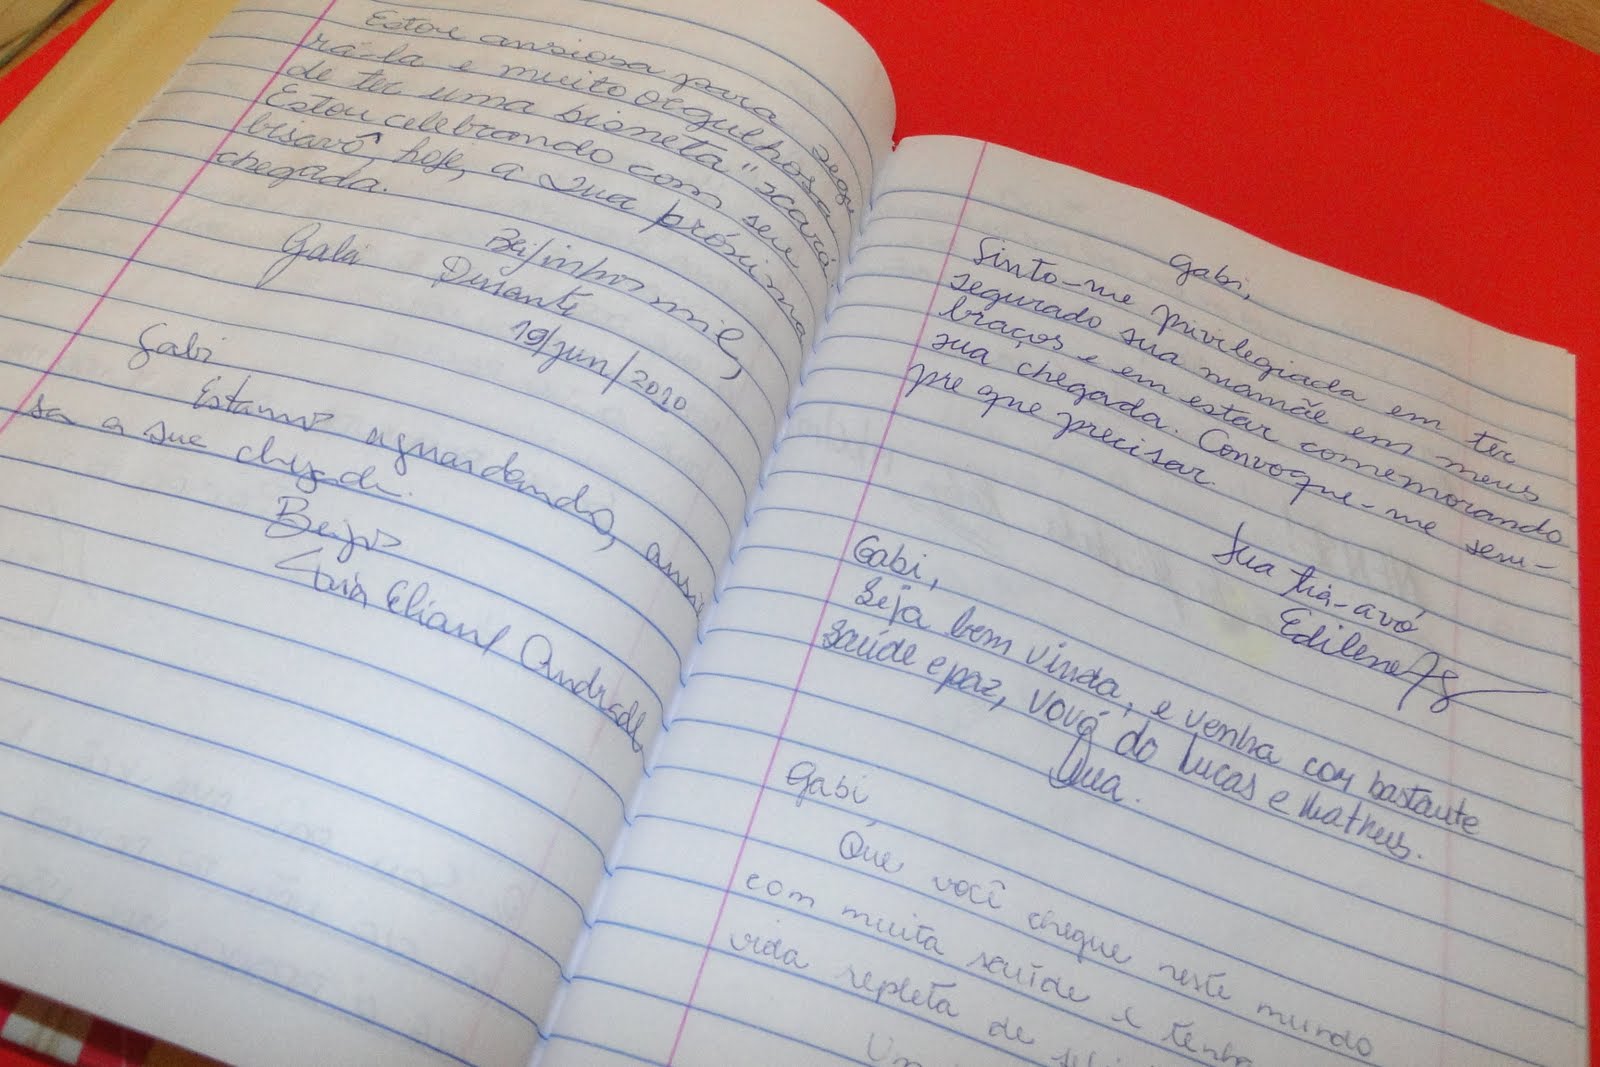 Estou ansiosa para segu
rá-la e muito orgulhosa
de ter uma bisneta "xará"
Estou celebrando com seu
bisavô, hoje, a sua próxima
chegada.
Beijinhos mil,
Gabi
19/jun/2010
Gabi
Estamos aguardando, ansio
sa a sua chegada.
Beijos
Eliane Andrade
Gabi,
Sinto-me privilegiada em ter
segurado sua mamãe em meus
braços e em estar comemorando
sua chegada. Convoque-me sem-
pre que precisar.
Sua tia-avó
Edilene
Gabi,
Seja bem vinda, e venha com bastante
saúde e paz, vovó do Lucas e Matheus.
Gabi,
Que você chegue neste mundo
com muita saúde e tenha
vida repleta de
Um